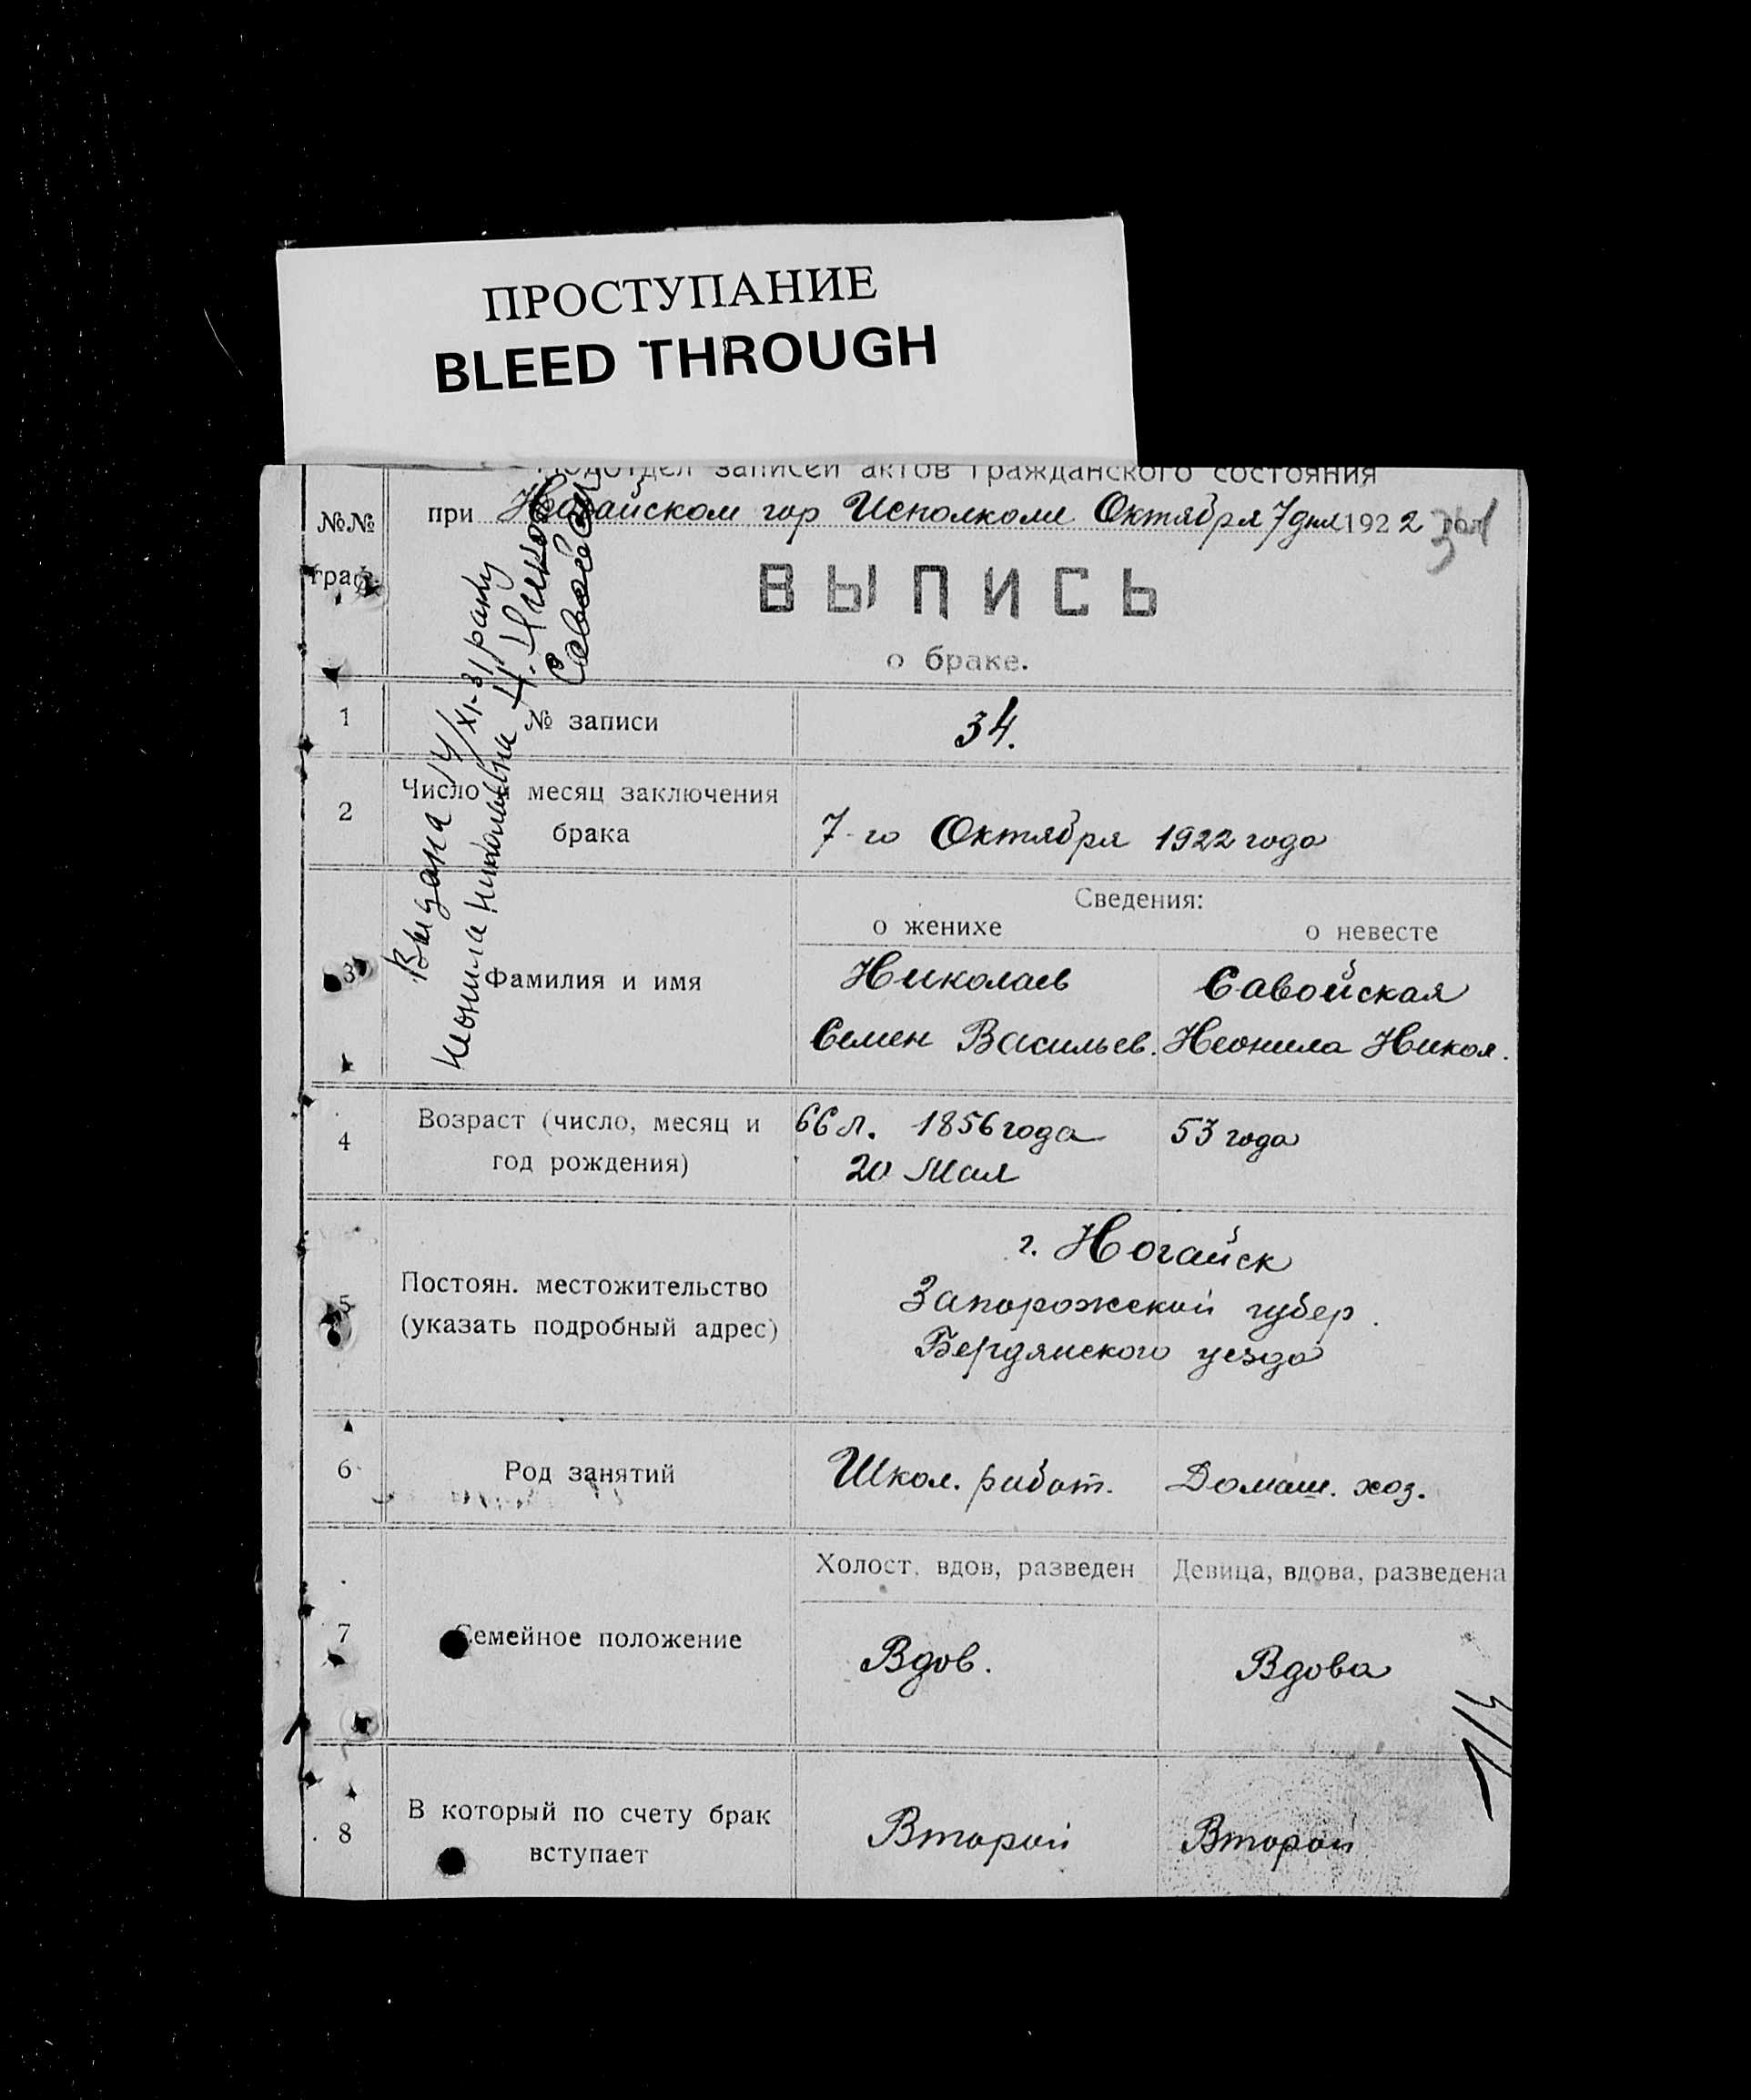 ПРОСТУПАНИЕ
BLEED THROUGH
Подотдел записей актов гражданского состояния
№№ граф.
при Ногайском гор Исполкоме Октября 7 дня 1922 года
34
ВЫПИСЬ
о браке.
Выдана 14/XI-31
Неонила Николаевна
Савойская
1 № записи 34.
2 Число и месяц заключения
брака 7-го Октября 1922 года
Сведения:
о женихе о невесте
3 Фамилия и имя Николаев Савойская
Семен Васильев. Неонила Никол.
4 Возраст (число, месяц и
год рождения) 66 л. 1856 года 53 года
20 Мая
г. Ногайск
5 Постоян. местожительство Запорожской губер.
(указать подробный адрес) Бердянского уезда
6 Род занятий Школ. работ. Домаш. хоз.
Холост, вдов, разведен Девица, вдова, разведена
7 Семейное положение Вдов. Вдова
8 В который по счету брак
вступает Второй Второй